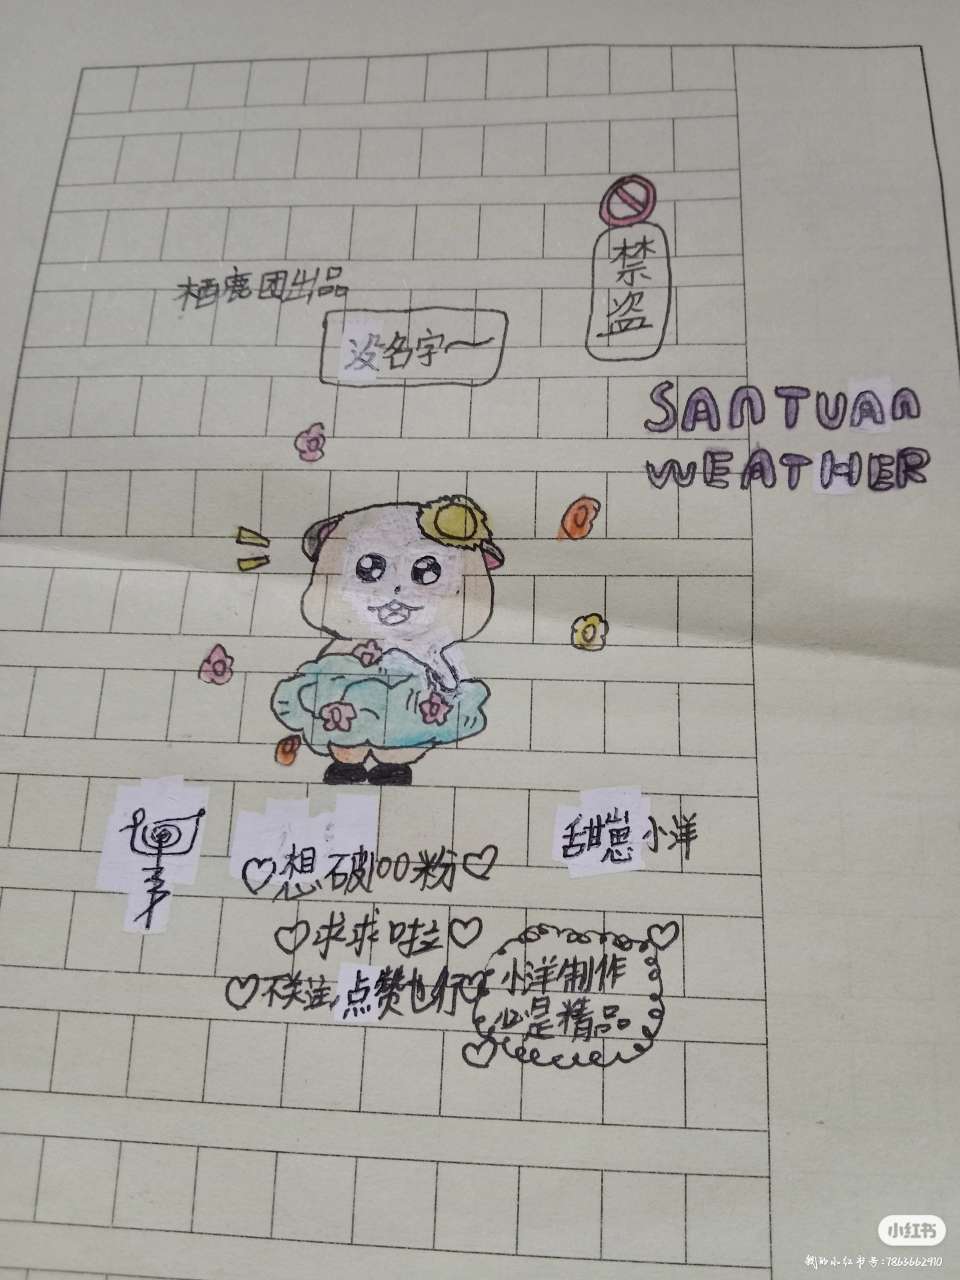 禁
盗
栖鹿团出品
没名字~
SANTUAN
WEATHER
甜崽小洋
♡想破100粉♡
♡求求啦♡
♡不关注,点赞也行♡
小洋制作
必是精品
小红书
我的小红书号:7863662910